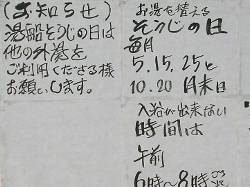 (お知らせ)
湯船そうじの日は
他の外湯を
ご利用くださる様
お願いします。
お湯を替える
そうじの日
毎月
5.15.25と
10.20月末日
入浴が出来ない
時間は
午前
6時〜8時